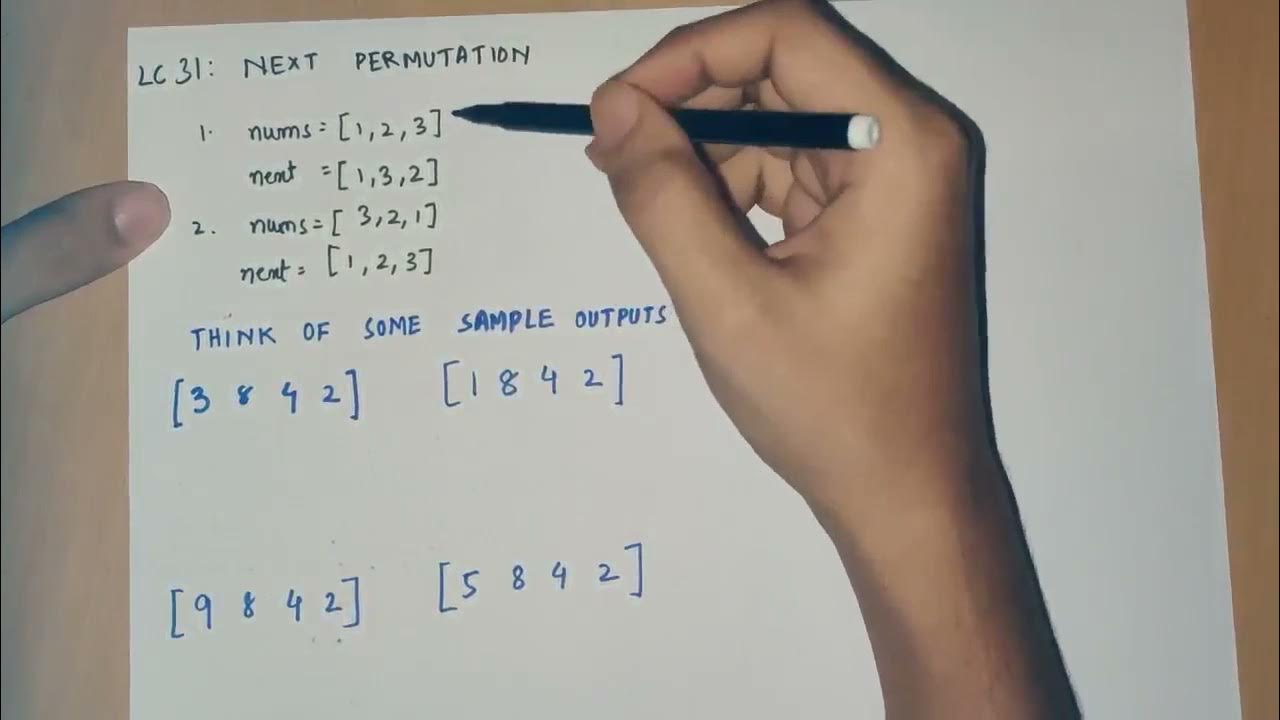 LC 31: NEXT PERMUTATION
1. nums = [1, 2, 3]
next = [1, 3, 2]
2. nums = [3, 2, 1]
next = [1, 2, 3]
THINK OF SOME SAMPLE OUTPUTS
[3 8 4 2] [1 8 4 2]
[9 8 4 2] [5 8 4 2]